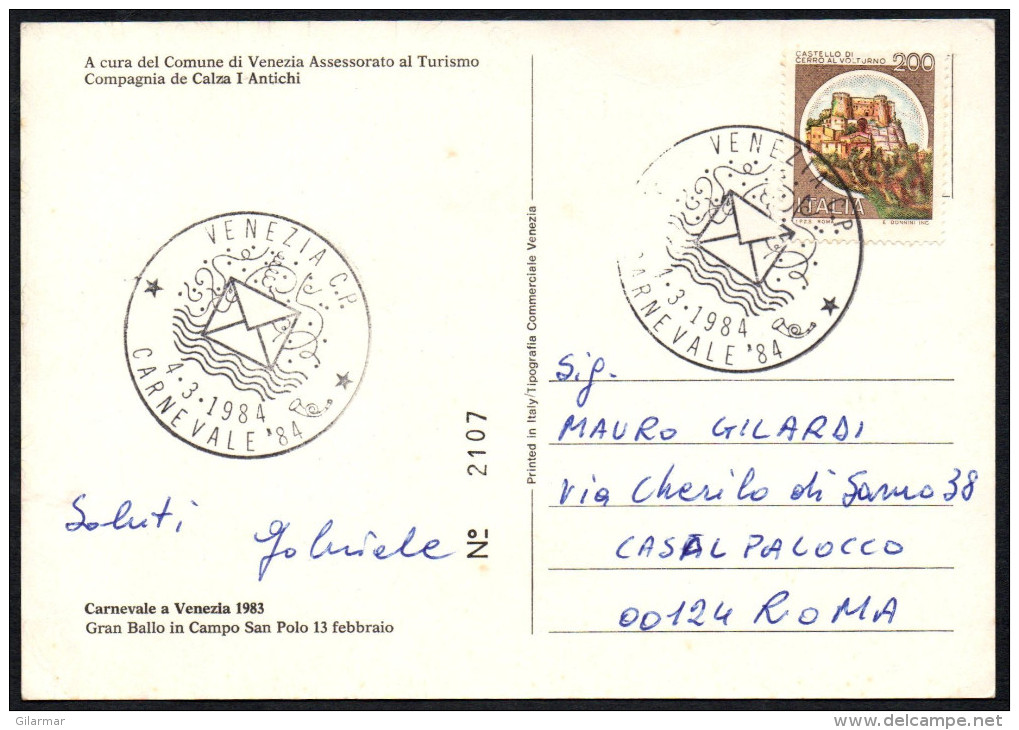 A cura del Comune di Venezia Assessorato al Turismo
Compagnia de Calza I Antichi
CASTELLO DI
CERRO AL VOLTURNO 200
ITALIA
E. DONNINI INC.
VENEZIA C.P.
4·3·1984
CARNEVALE '84
VENEZIA C.P.
4·3·1984
CARNEVALE '84
Saluti
Gabriele
Carnevale a Venezia 1983
Gran Ballo in Campo San Polo 13 febbraio
Nº 2107
Printed in Italy/Tipografia Commerciale Venezia
Sig.
MAURO GILARDI
via Cherilo di Samo 38
CASAL PALOCCO
00124 ROMA
Gilarmar
www.delcampe.net